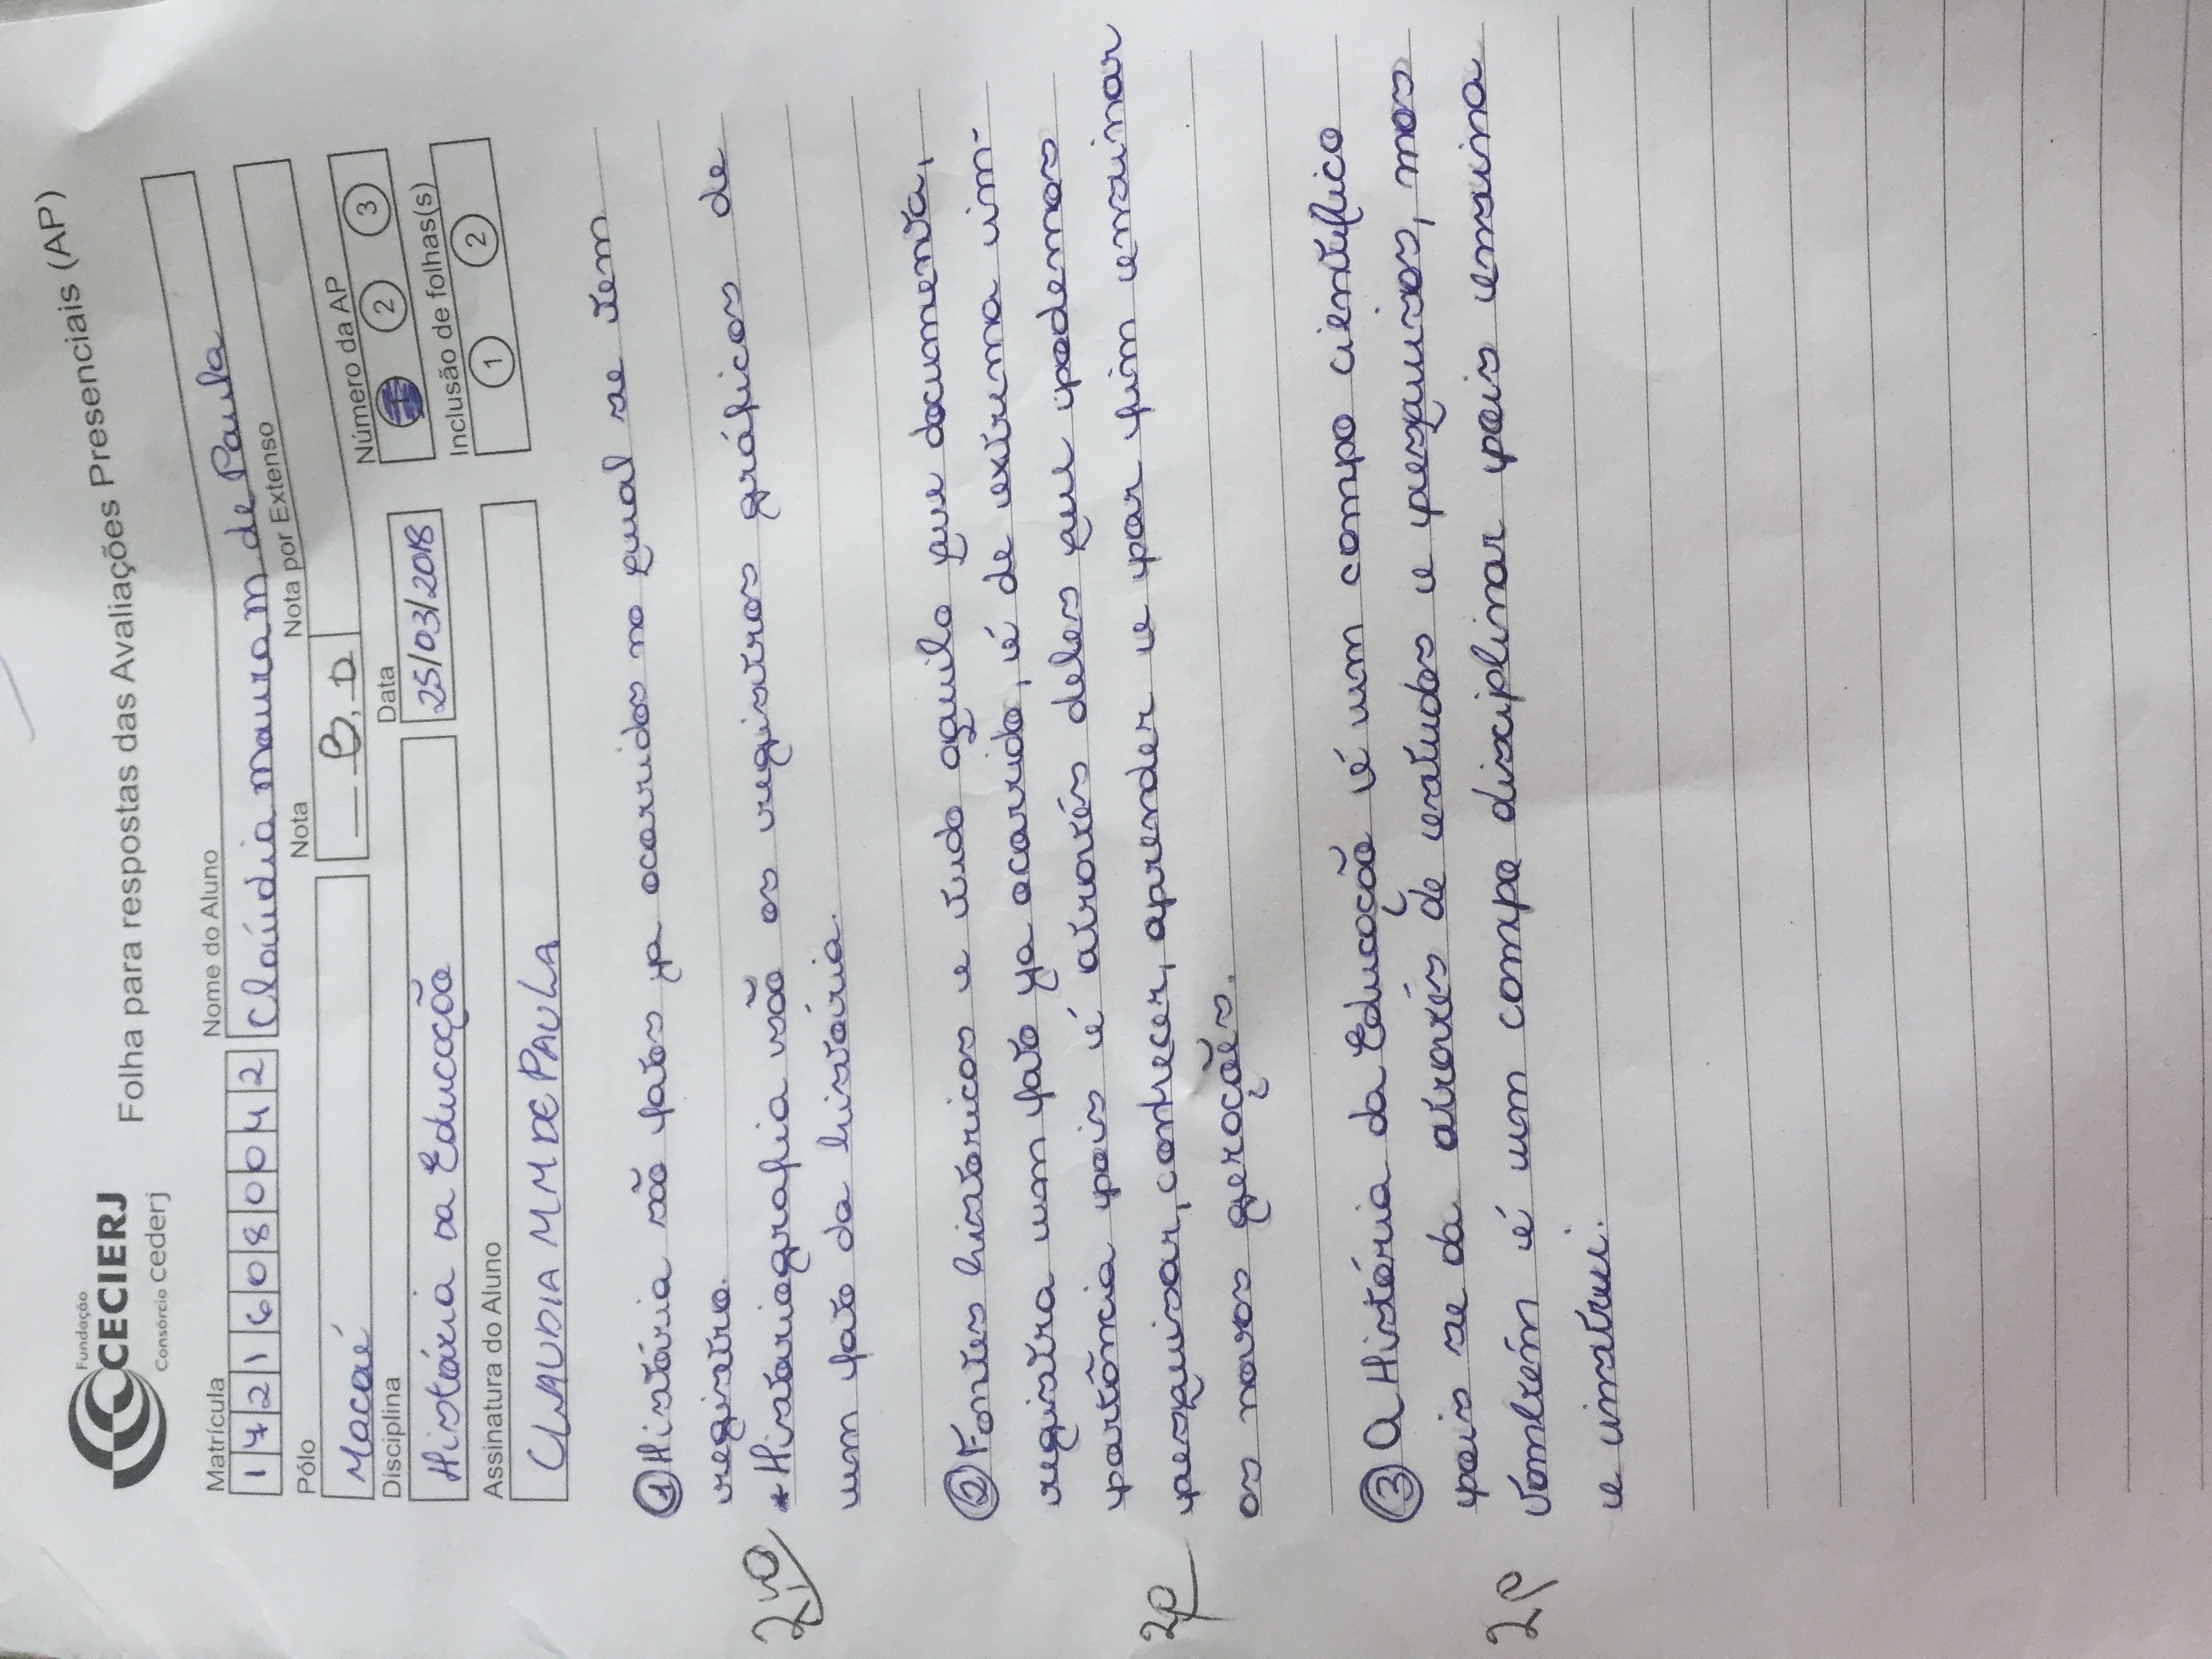 Fundação
CECIERJ
Consórcio cederj
Folha para respostas das Avaliações Presenciais (AP)
Matrícula
17216080042
Nome do Aluno
Claúdia Maura M de Paula
Pólo
Macaé
Nota
8,0
Nota por Extenso
Número da AP
1 2 3
Disciplina
História da Educação
Data
25/03/2018
Inclusão de folhas(s)
1 2
Assinatura do Aluno
CLAUDIA M M DE PAULA
① História são fatos ja ocorridos no qual se tem
registro.
2,0
* Historiografia são os registros gráficos de
um fato da história.
② Fontes historicas e tudo aquilo que documenta,
registra um fato ja ocorrido, é de extrema im-
portância pois é através deles que podemos
2,0
pesquisar, conhecer, aprender e por fim ensinar
as novas gerações.
③ A História da Educação é um campo científico
pois se da através de estudos e pesquisas, mas
2,0
também é um campo disciplinar pois ensina
e instrui.